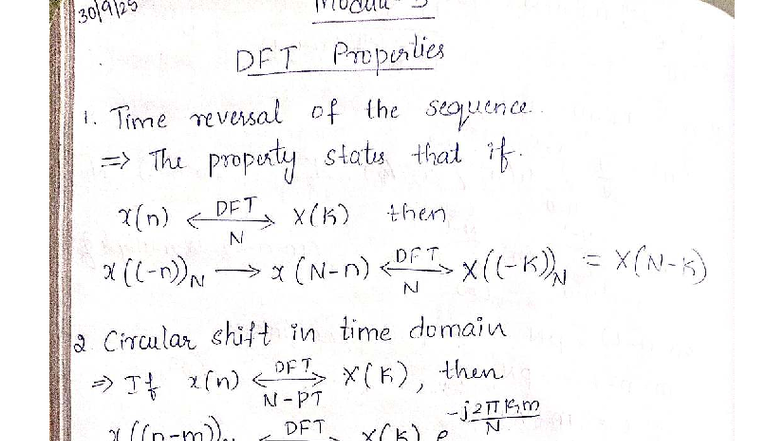 30/9/25
DFT Properties
1. Time reversal of the sequence.
=> The property states that if.
x(n) <—DFT/N—> X(K) then
x((-n))N —> x(N-n) <—DFT/N—> X((-K))N = X(N-K)
2 Circular shift in time domain
=> If x(n) <—DFT/N-PT—> X(K), then
x((n-m))N <—DFT—> X(K) e^-j2πKm/N